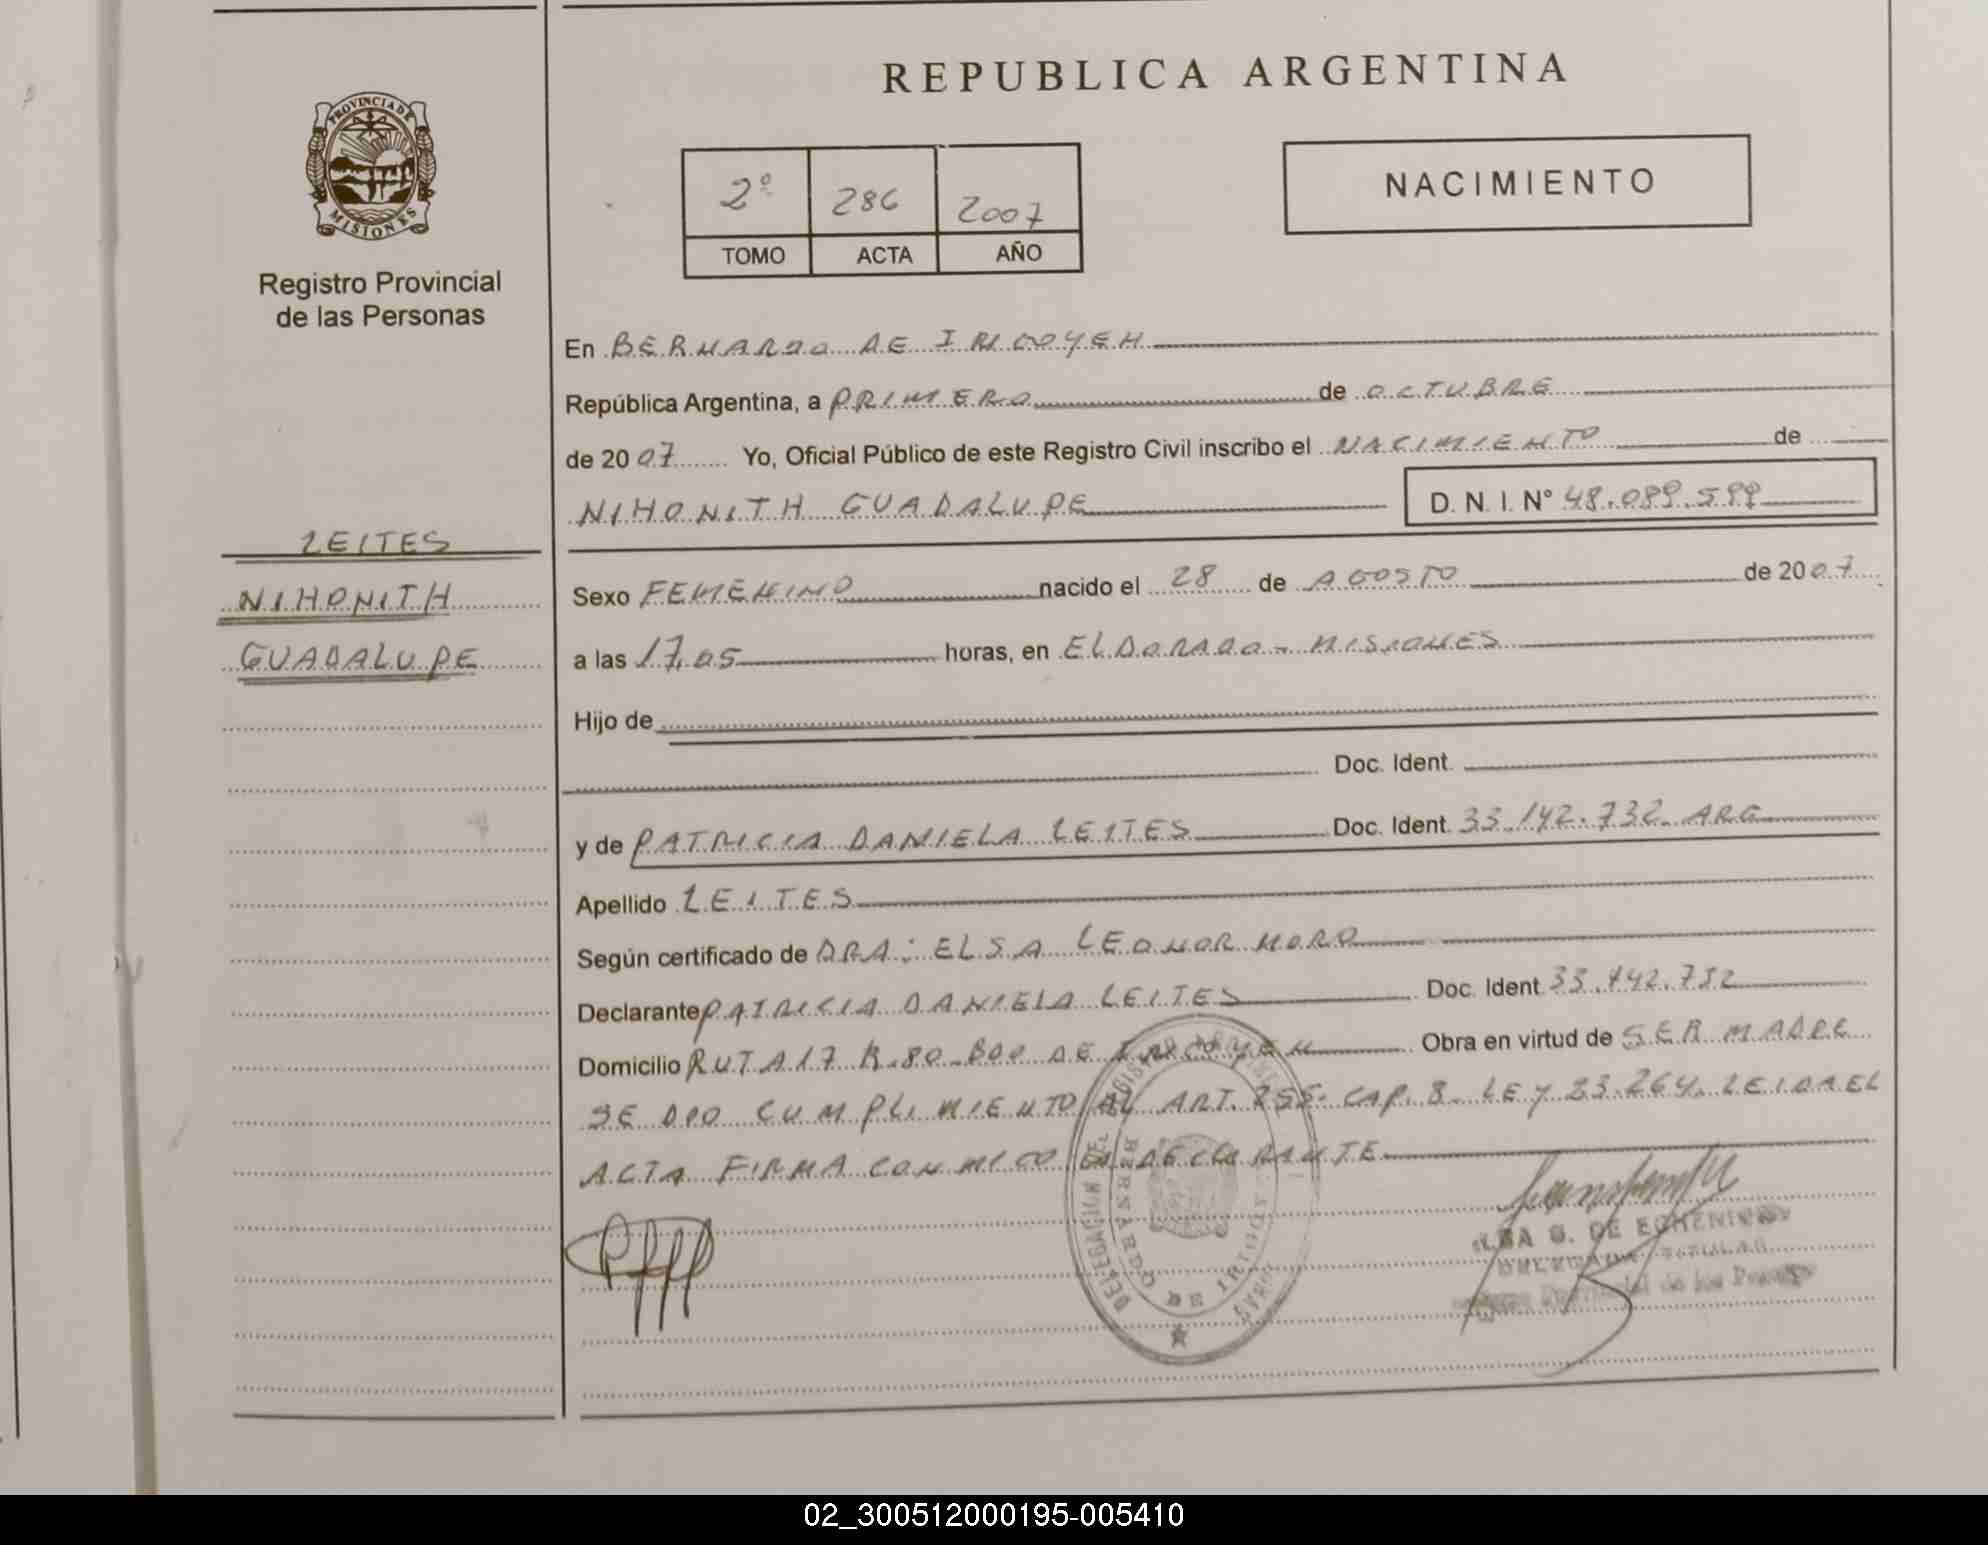 REPUBLICA ARGENTINA
PROVINCIA DE
MISIONES
Registro Provincial
de las Personas
2º 286 2007
TOMO ACTA AÑO
NACIMIENTO
En BERNARDO DE IRIGOYEN
República Argentina, a PRIMERO de OCTUBRE
de 2007 Yo, Oficial Público de este Registro Civil inscribo el NACIMIENTO de
NIHONITH GUADALUPE D. N. I. N° 48.089.599
LEITES
NIHONITH
GUADALUPE
Sexo FEMENINO nacido el 28 de AGOSTO de 2007
a las 17,05 horas, en ELDORADO - MISIONES
Hijo de
Doc. Ident.
y de PATRICIA DANIELA LEITES Doc. Ident. 33.142.732 ARG
Apellido LEITES
Según certificado de DRA: ELSA LEONOR MORO
Declarante PATRICIA DANIELA LEITES Doc. Ident. 33.142.732
Domicilio RUTA 17 K.80 BDO DE IRIGOYEN Obra en virtud de SER MADRE
SE DIO CUMPLIMIENTO AL ART. 255- CAP. 8- LEY 23.264. LEIDA EL
ACTA FIRMA CONMIGO EL DECLARANTE
DELEGACION DEL REGISTRO
BERNARDO DE IRIGOYEN
G. DE
02_300512000195-005410